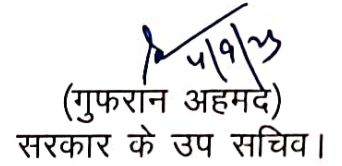 4/9/23
(गुफरान अहमद)
सरकार के उप सचिव।